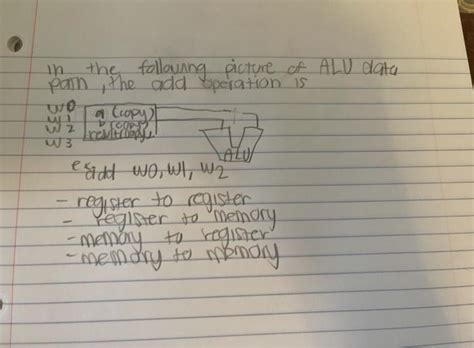 In the following picture of ALU data
path, the add operation is
w0 a (copy)
w1 b (copy)
w2 result (copy)
w3
ALU
add w0, w1, w2
- register to register
- register to memory
- memory to register
- memory to memory